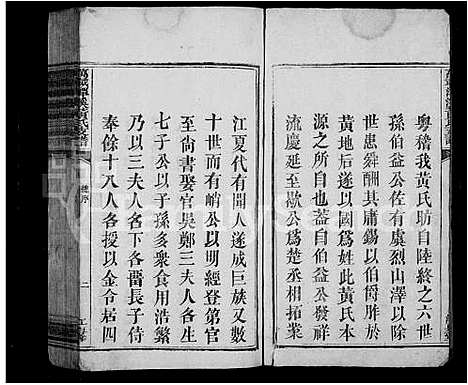 粵稽我黃氏助自陸終之六世
孫伯益公佐有虞烈山澤以除
世患舜酬其庸錫以伯爵胙於
黃地后遂以國爲姓此黃氏本
源之所自也蓋自伯公發祥
流慶延至歇公爲楚丞相拓業
江夏代有聞人遂成巨族又數
十世而有峭公以明經登第官
至尚書娶官吳鄭三夫人各生
七子公以子孫多衆食用浩繁
乃以三夫人名下各留長子侍
奉餘十八人各授以金令居四
總序
二